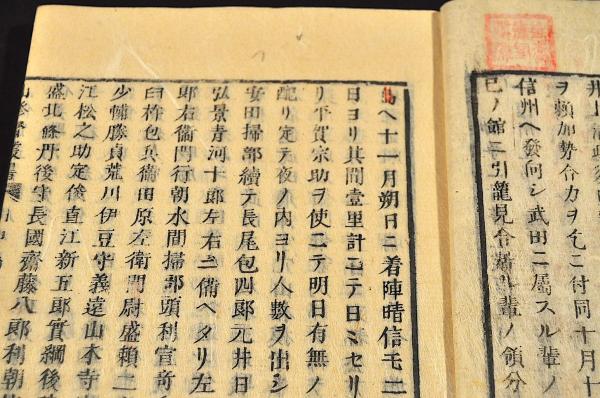 ヲ頼加勢合力ヲ乞ニ付同十月十
信州ヘ發向シ武田ニ屬スル輩ノ
巳ノ館ニ引籠見合輩ノ領分
ヘ十一月朔日ニ着陣晴信モ二
日ヨリ其間壹里計ニテ日ミセリ
リ平賀宗助ヲ使ニテ明日有無ノ
配リ定テ夜ノ内ヨリ人數ヲ出シ
安田掃部續テ長尾包四郎元井日
弘景青河十郎左右ニ備ヘタリ左
郎右衞門行朝水間掃部頭利宣奇
臼杵包兵衞田原左衞門尉盛頼二
少輔勝貞荒川伊豆守義遠山本寺
江松之助定俊直江新五郎實綱後
盛北條丹後守長國齋藤八郎利朝